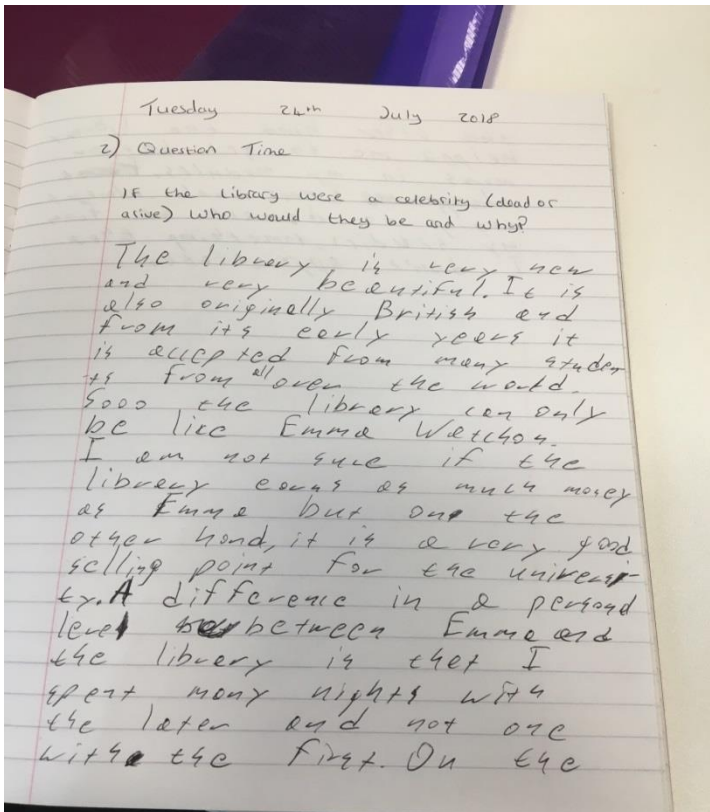 Tuesday 24th July 2018
2) Question Time
If the library were a celebrity (dead or
alive) who would they be and why?
The library is very new
and very beautiful. It is
also originally British and
from its early years it
is accepted from many studen
ts from all over the world.
Sooo the library can only
be like Emma Watshon.
I am not sure if the
library earns as much money
as Emma but one the
other hand, it is a very good
selling point for the universi-
ty. A difference in a persond
level between Emma and
the library is that I
spent many nights with
the later and not one
with the first. On the